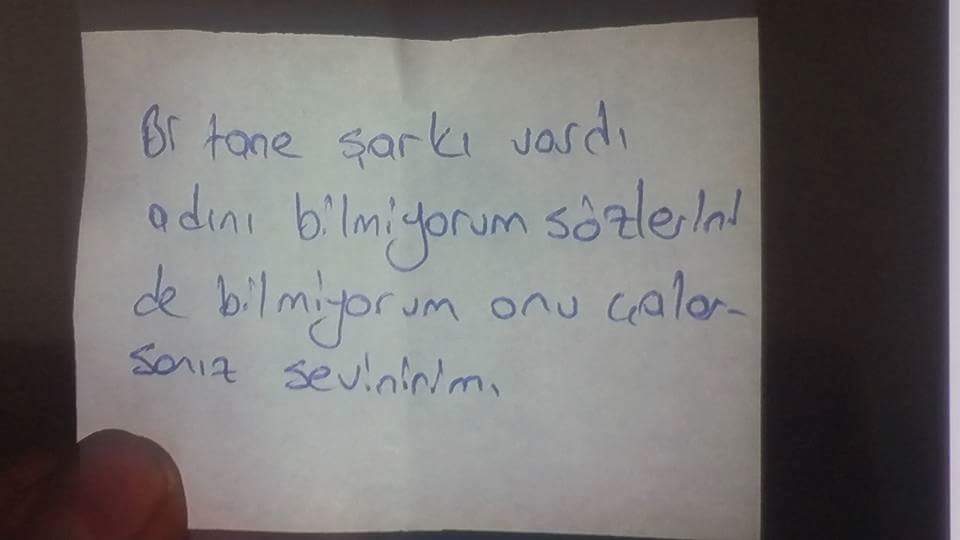 Bi tane şarkı vardı
adını bilmiyorum sözlerini
de bilmiyorum onu çalar-
sanız sevinirim.